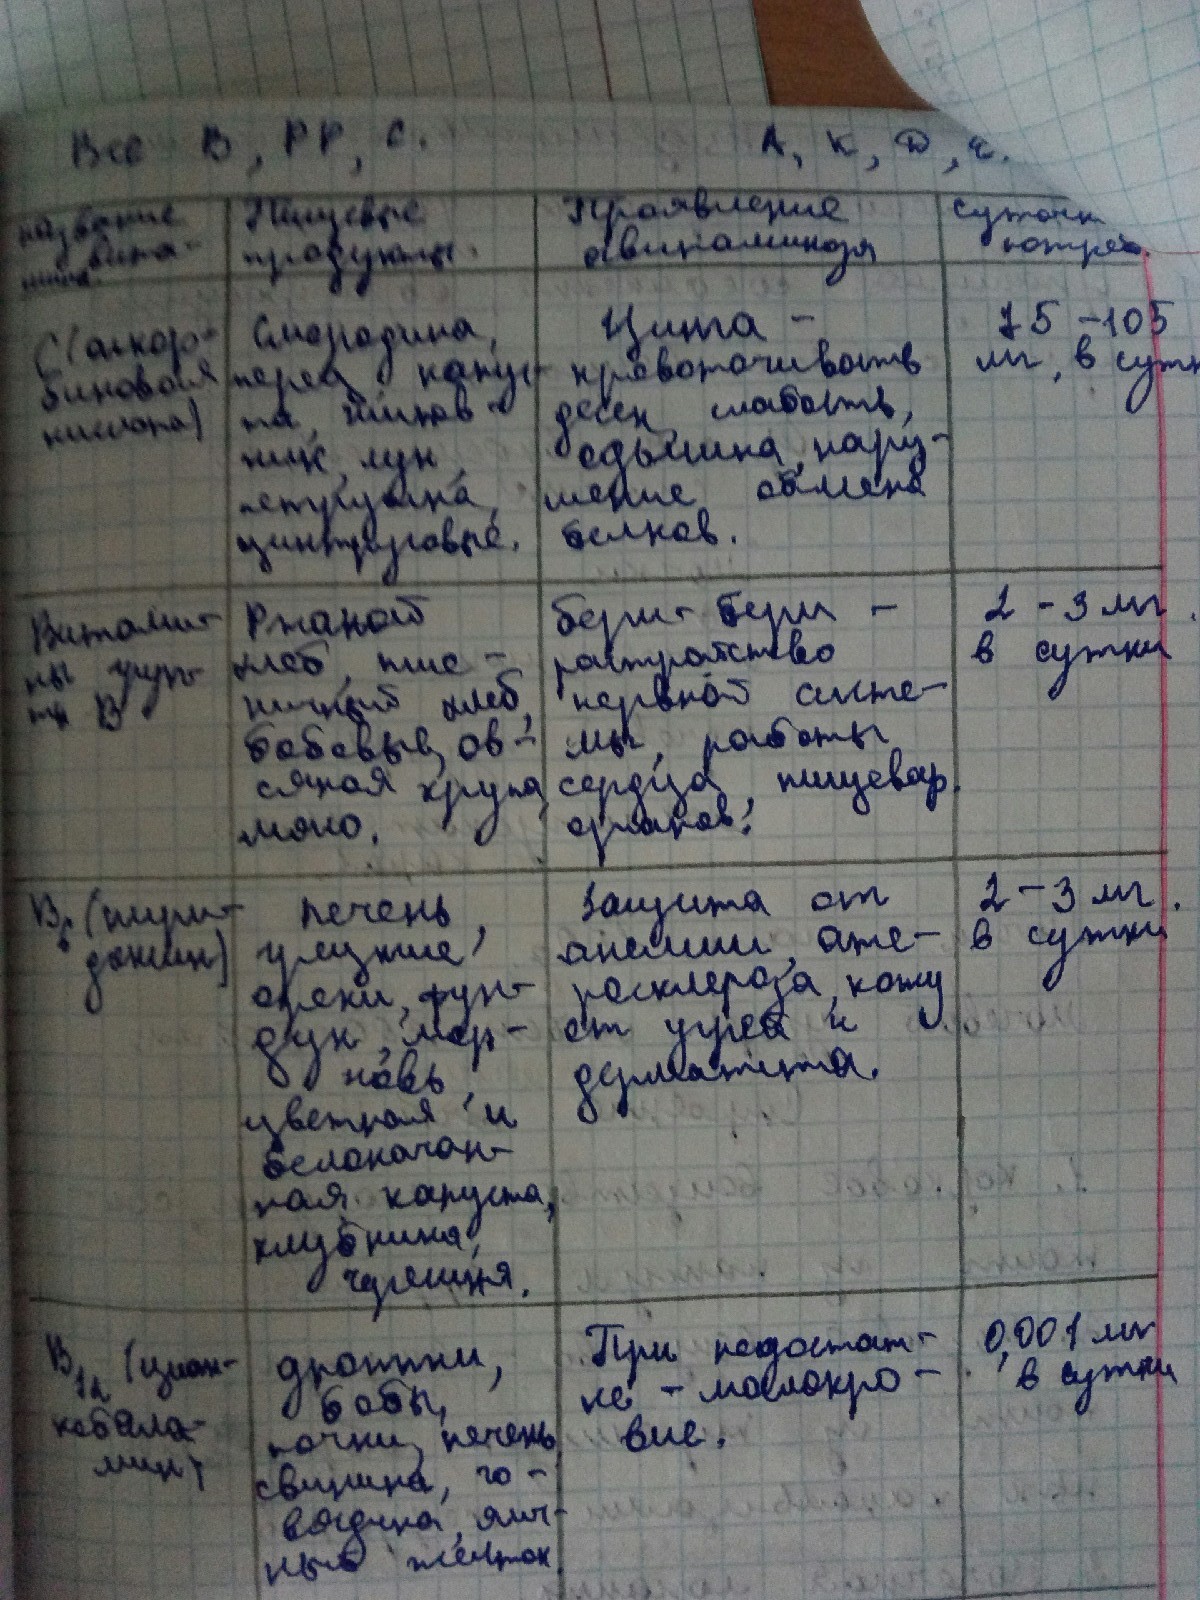 Все В, РР, С. А, К, D, е.
название вита-
мина
Пищевые
продукты.
Проявление
авитаминоза
суточн
потреб.
С (аскор-
биновая
кислота)
Смородина,
перец, капус-
та, шипов-
ник, лук,
петрушка,
цитрусовые.
Цинга -
кровоточивость
десен, слабость,
одышка, нару-
шение обмена
белков.
75 - 105
мг, в сутк
Витами-
ны груп-
пы В
Ржаной
хлеб, пше-
ничный хлеб,
бобовые, ов-
сяная крупа,
мясо.
бери-бери -
расстройство
нервной систе-
мы, работы
сердца, пищевар.
органов.
2 - 3 мг.
в сутки
В6 (пири-
доксин)
печень,
грецкие
орехи, фун-
дук, мор-
ковь,
цветная и
белокочан-
ная капуста,
клубника,
черешня.
Защита от
анемии, ате-
росклероза, кожу
от угрей и
дерматита.
2 - 3 мг.
в сутки
В12 (циан-
кобала-
мин)
дрожжи,
бобы,
почки, печень,
свинина, го-
вядина, яич-
ный желток
При недостат-
ке - малокро-
вие.
0,001 мг
в сутки